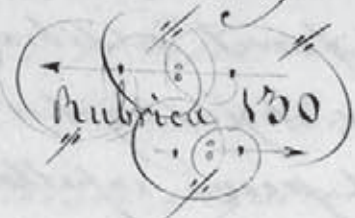 Rubrica 130